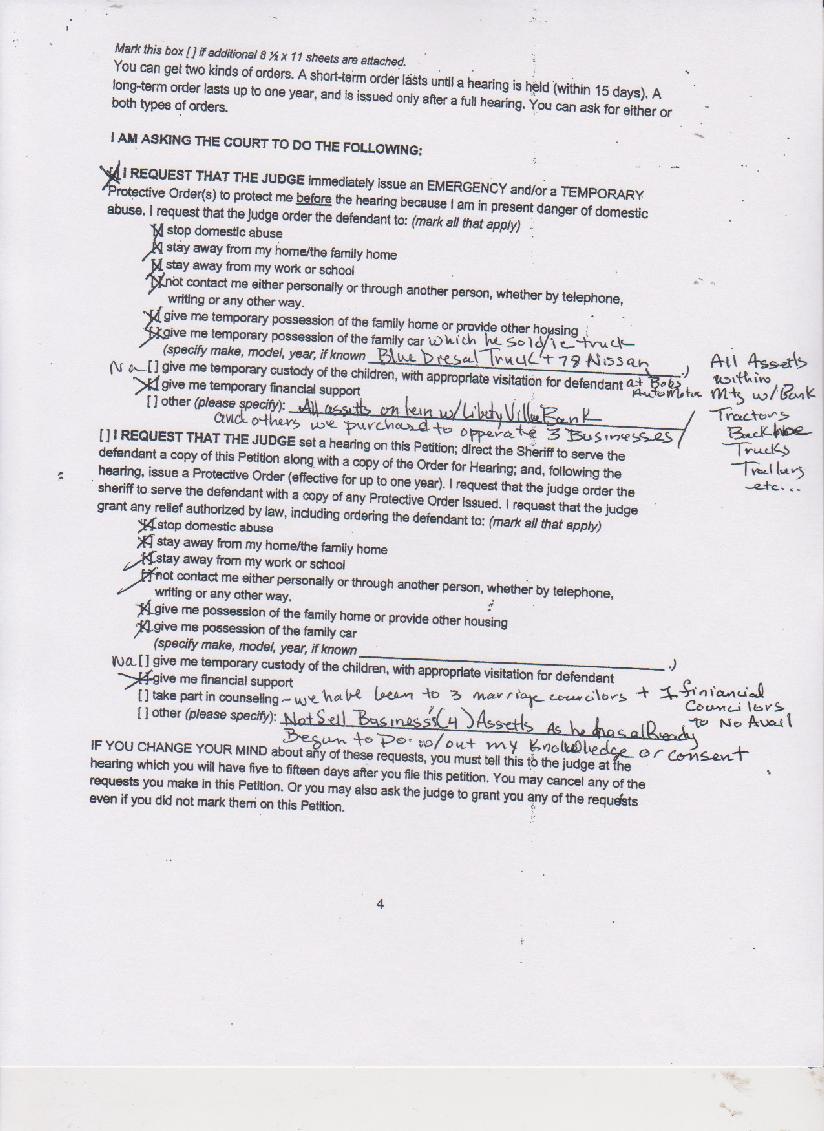 Mark this box [ ] if additional 8 ½ x 11 sheets are attached.
You can get two kinds of orders. A short-term order lasts until a hearing is held (within 15 days). A
long-term order lasts up to one year, and is issued only after a full hearing. You can ask for either or
both types of orders.
I AM ASKING THE COURT TO DO THE FOLLOWING:
[X] I REQUEST THAT THE JUDGE immediately issue an EMERGENCY and/or a TEMPORARY
Protective Order(s) to protect me before the hearing because I am in present danger of domestic
abuse. I request that the judge order the defendant to: (mark all that apply)
[X] stop domestic abuse
[X] stay away from my home/the family home
[X] stay away from my work or school
[X] not contact me either personally or through another person, whether by telephone,
writing or any other way.
[X] give me temporary possession of the family home or provide other housing
[X] give me temporary possession of the family car which he sold/ie truck
(specify make, model, year, if known Blue Diesal Truck + 78 Nissan .)
Na [ ] give me temporary custody of the children, with appropriate visitation for defendant at Bobs
AutoMotive
[X] give me temporary financial support
[ ] other (please specify): All assetts on lein w/ Libety Ville Bank
and others we purchased to opperate 3 Businesses/
All Assetts
within
Mtg w/Bank
Tractors
Backhoe
Trucks
Trallers
etc...
[ ] I REQUEST THAT THE JUDGE set a hearing on this Petition; direct the Sheriff to serve the
defendant a copy of this Petition along with a copy of the Order for Hearing; and, following the
hearing, issue a Protective Order (effective for up to one year). I request that the judge order the
sheriff to serve the defendant with a copy of any Protective Order issued. I request that the judge
grant any relief authorized by law, including ordering the defendant to: (mark all that apply)
[X] stop domestic abuse
[X] stay away from my home/the family home
[X] stay away from my work or school
[X] not contact me either personally or through another person, whether by telephone,
writing or any other way.
[X] give me possession of the family home or provide other housing
[X] give me possession of the family car
(specify make, model, year, if known .)
Na [ ] give me temporary custody of the children, with appropriate visitation for defendant
[X] give me financial support
[ ] take part in counseling – we have been to 3 marriage councilors + 1 finiancial
Councilors
to No Avail
[ ] other (please specify): Not Sell Business's (4) Assetts As he has already
Begun to Do w/out my Knowledge or consent
IF YOU CHANGE YOUR MIND about any of these requests, you must tell this to the judge at the
hearing which you will have five to fifteen days after you file this petition. You may cancel any of the
requests you make in this Petition. Or you may also ask the judge to grant you any of the requests
even if you did not mark them on this Petition.
4